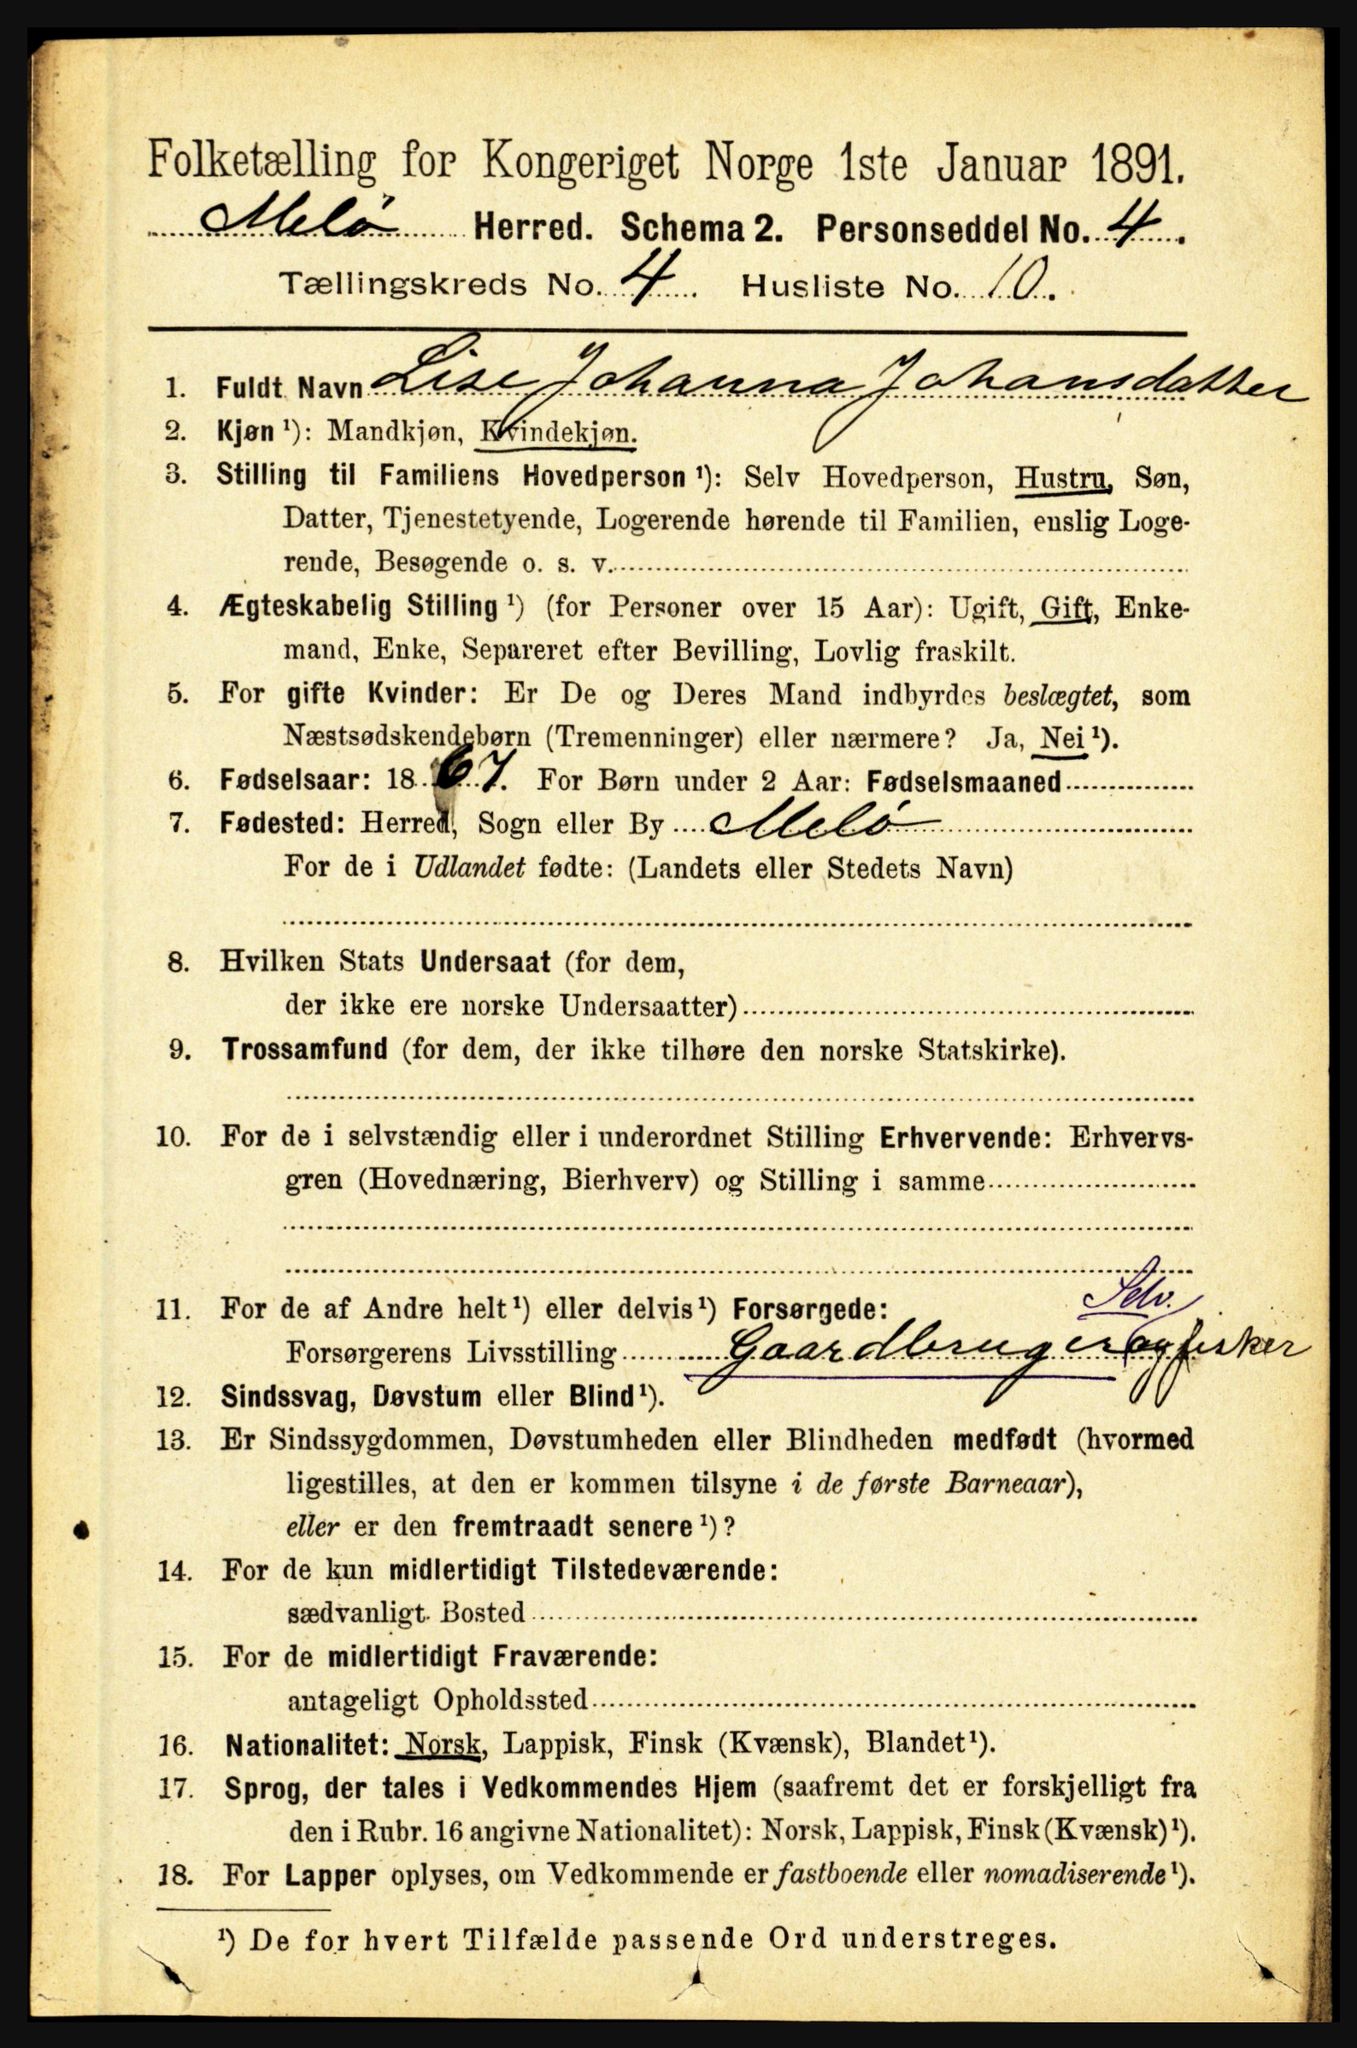 Folketælling for Kongeriget Norge 1ste Januar 1891.
Melø Herred. Schema 2. Personseddel No. 4.
Tællingskreds No. 4. Husliste No. 10.
1. Fuldt Navn Lise Johanna Johansdatter
2. Kjøn ¹): Mandkjøn, Kvindekjøn.
3. Stilling til Familiens Hovedperson ¹): Selv Hovedperson, Hustru, Søn,
Datter, Tjenestetyende, Logerende hørende til Familien, enslig Loge-
rende, Besøgende o. s. v.
4. Ægteskabelig Stilling ¹) (for Personer over 15 Aar): Ugift, Gift, Enke-
mand, Enke, Separeret efter Bevilling, Lovlig fraskilt.
5. For gifte Kvinder: Er De og Deres Mand indbyrdes beslægtet, som
Næstsødskendebørn (Tremenninger) eller nærmere? Ja, Nei ¹).
6. Fødselsaar: 1867. For Børn under 2 Aar: Fødselsmaaned
7. Fødested: Herred, Sogn eller By Melø
For de i Udlandet fødte: (Landets eller Stedets Navn)
8. Hvilken Stats Undersaat (for dem,
der ikke ere norske Undersaatter)
9. Trossamfund (for dem, der ikke tilhøre den norske Statskirke).
10. For de i selvstændig eller i underordnet Stilling Erhvervende: Erhvervs-
gren (Hovednæring, Bierhverv) og Stilling i samme
Selv.
11. For de af Andre helt ¹) eller delvis ¹) Forsørgede:
Forsørgerens Livsstilling Gaardbruger og fisker
12. Sindssvag, Døvstum eller Blind ¹).
13. Er Sindssygdommen, Døvstumheden eller Blindheden medfødt (hvormed
ligestilles, at den er kommen tilsyne i de første Barneaar),
eller er den fremtraadt senere ¹)?
14. For de kun midlertidigt Tilstedeværende:
sædvanligt Bosted
15. For de midlertidigt Fraværende:
antageligt Opholdssted
16. Nationalitet: Norsk, Lappisk, Finsk (Kvænsk), Blandet ¹).
17. Sprog, der tales i Vedkommendes Hjem (saafremt det er forskjelligt fra
den i Rubr. 16 angivne Nationalitet): Norsk, Lappisk, Finsk (Kvænsk) ¹).
18. For Lapper oplyses, om Vedkommende er fastboende eller nomadiserende ¹).
¹) De for hvert Tilfælde passende Ord understreges.